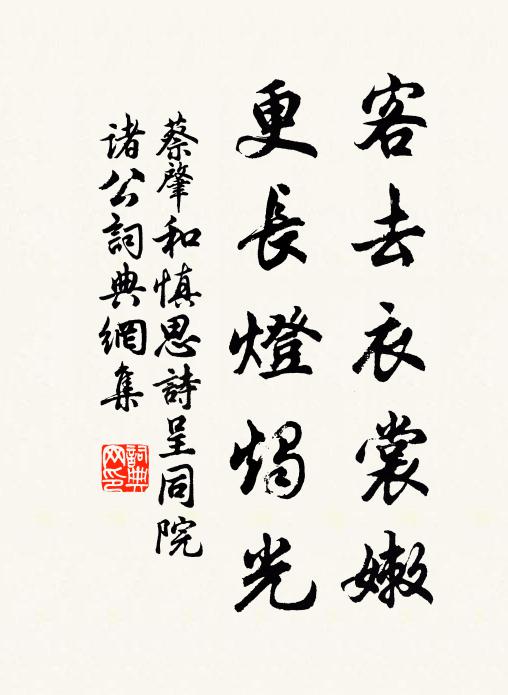 客去衣裳嫩
更長燈燭光
蔡肇和慎思詩呈同院
诸公詞典網集
詞典网印